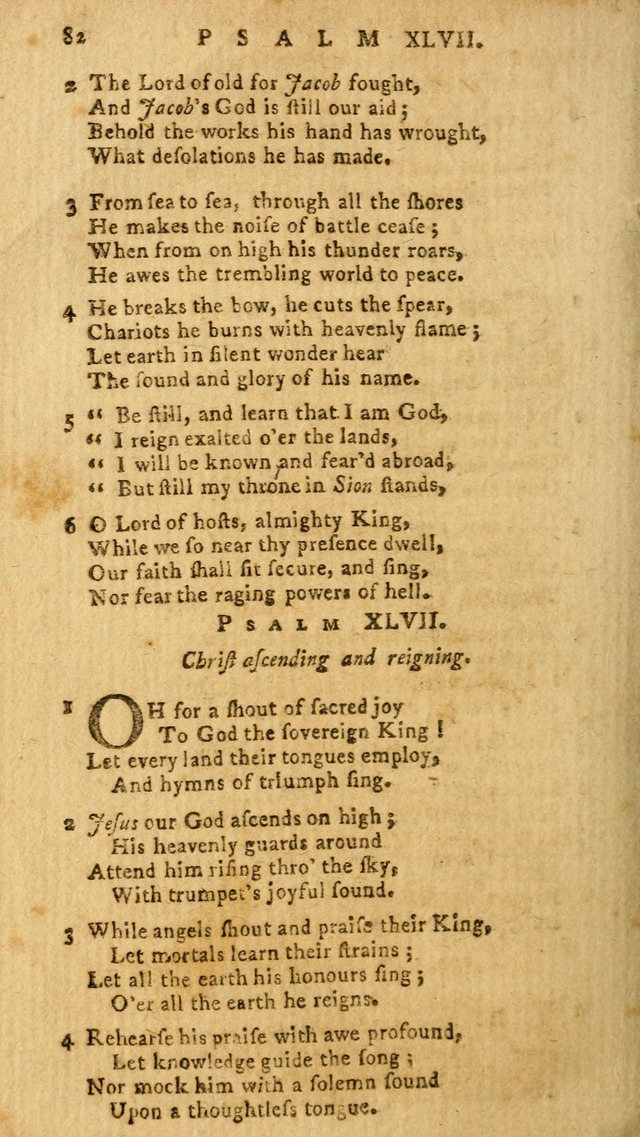 82 PSALM XLVII.
2 The Lord of old for Jacob fought,
And Jacob's God is ſtill our aid;
Behold the works his hand has wrought,
What deſolations he has made.
3 From ſea to ſea, through all the ſhores
He makes the noiſe of battle ceaſe;
When from on high his thunder roars,
He awes the trembling world to peace.
4 He breaks the bow, he cuts the ſpear,
Chariots he burns with heavenly flame;
Let earth in ſilent wonder hear
The ſound and glory of his name.
5 “ Be ſtill, and learn that I am God,
“ I reign exalted o'er the lands,
“ I will be known and fear'd abroad,
“ But ſtill my throne in Sion ſtands,
6 O Lord of hoſts, almighty King,
While we ſo near thy preſence dwell,
Our faith ſhall ſit ſecure, and ſing,
Nor fear the raging powers of hell.
PSALM XLVII.
Chriſt aſcending and reigning.
1 OH for a ſhout of ſacred joy
To God the ſovereign King!
Let every land their tongues employ,
And hymns of triumph ſing.
2 Jeſus our God aſcends on high;
His heavenly guards around
Attend him riſing thro' the ſky,
With trumpet's joyful ſound.
3 While angels ſhout and praiſe their King,
Let mortals learn their ſtrains;
Let all the earth his honours ſing;
O'er all the earth he reigns.
4 Rehearſe his praiſe with awe profound,
Let knowledge guide the ſong;
Nor mock him with a ſolemn ſound
Upon a thoughtleſs tongue.